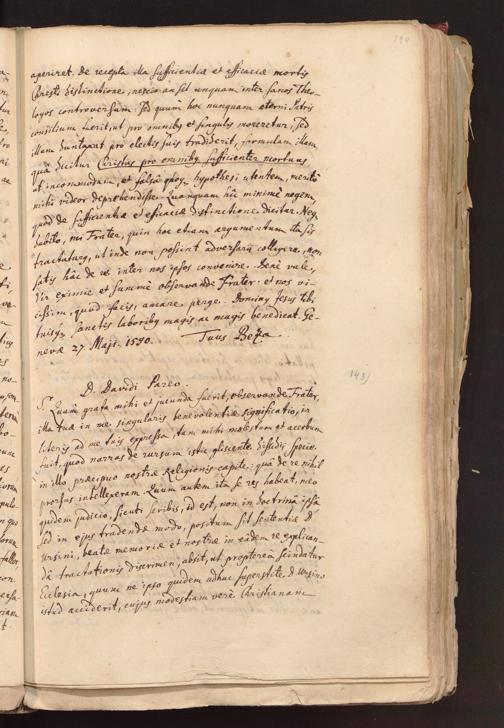 190
aperiret. De recepta illa sufficientiæ et efficaciæ mortis
Christi distinctione, nescio an sit unquam inter sanos Theo-
logos controversum. Sed quum hoc nunquam æterni Patris
consilium fuerit, ut pro omnibꝰ et singulis moreretur, sed
illum duntaxat pro electis suis tradiderit, formulam illam
quâ dicitur Christus pro omnibꝰ sufficienter mortuus
ut incommodam, et falsâ quoqꝫ hypothesi utentem, meritò
mihi videor deprehendisse. Quanquam hîc minimè negem,
quod de sufficientiæ et efficaciæ distinctione dicitur. Neqꝫ
dubito, mi Frater, quin hoc etiam argumentum ita sis
tractaturꝰ, ut inde non possint adversarii colligere, non
satis hâc de re inter nos ipsos convenire. Benè vale,
Vir eximie et summè observande Frater. et nos vi-
cissim, quod facis, amare perge. Dominꝰ Jesus tibi
tuisqꝫ sanctis laboribꝰ magis ac magis benedicat. Ge-
nevæ 27. Maji. 1590. Tuus Beza.
D. Davidi Pareo.
S. Quàm grata mihi et jucunda fuerit, observande Frater,
illa tua in me singularis benevolentiæ significatio, in
literis ad me tuis expressa, tam mihi molestum et acerbum
fuit, quod narras de rursum istic gliscente dissidii specie
in illo præcipuo nostræ Religionis capite: quâ de re nihil
prorsus intellexeram. Quum autem ita se res habeat, meo
quidem judicio, sicuti scribis, id est, non in doctrina ipsa
sed in ejus tradendæ modo, positum sit sententiæ D.
Ursini, beatæ memoriæ et nostræ in eâdem re explican-
dâ tractationis discrimen, absit, ut propterea scindatur
Ecclesia, quum ne ipso quidem adhuc superstite D. Ursino
istud acciderit, cujus modestiam verè Christianam